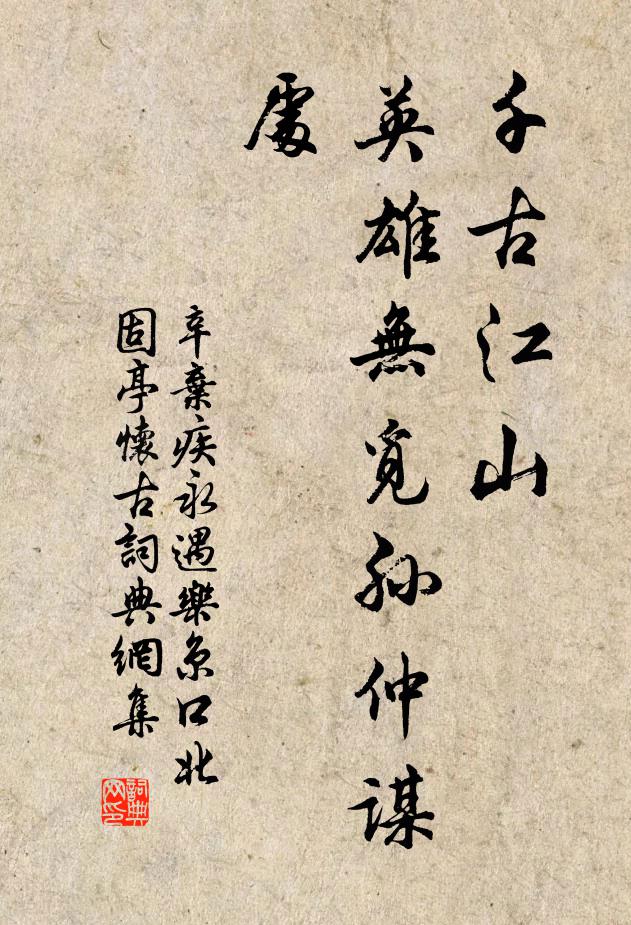 千古江山
英雄無覓孫仲謀
處
辛棄疾永遇樂京口北
固亭懷古詞典網集
詞典
网印